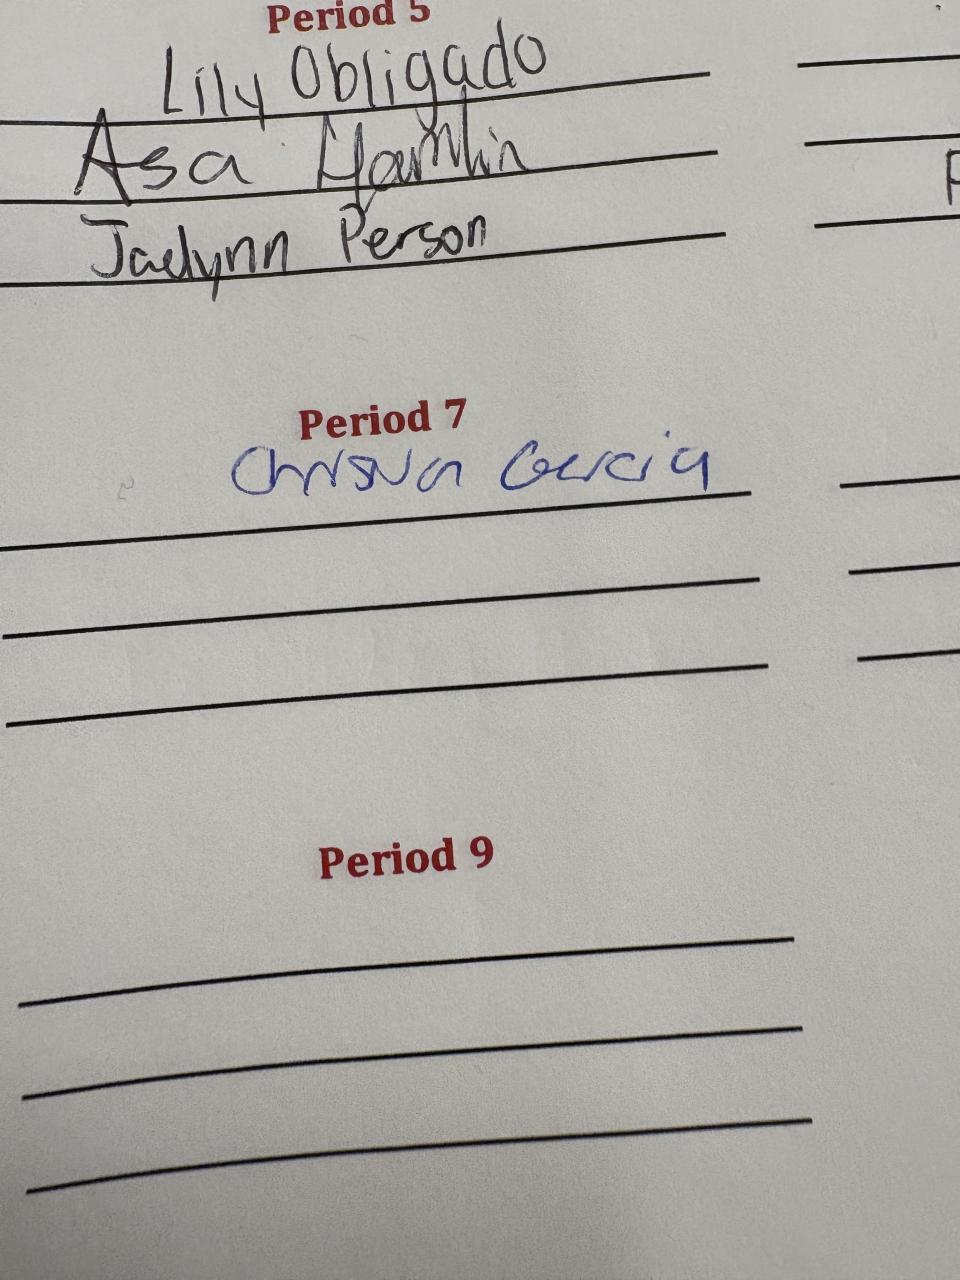 Period 5
Lily Obligado
Asa Hamlin
Jaelynn Person
P
Period 7
Christian Garcia
Period 9